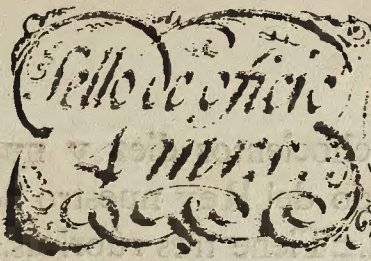 Sello de oficio
4 mrs